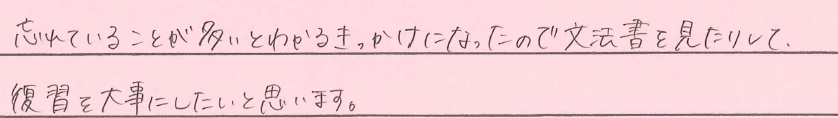 忘れていることが多いとわかるきっかけになったので文法書を見たりして、
復習を大事にしたいと思います。